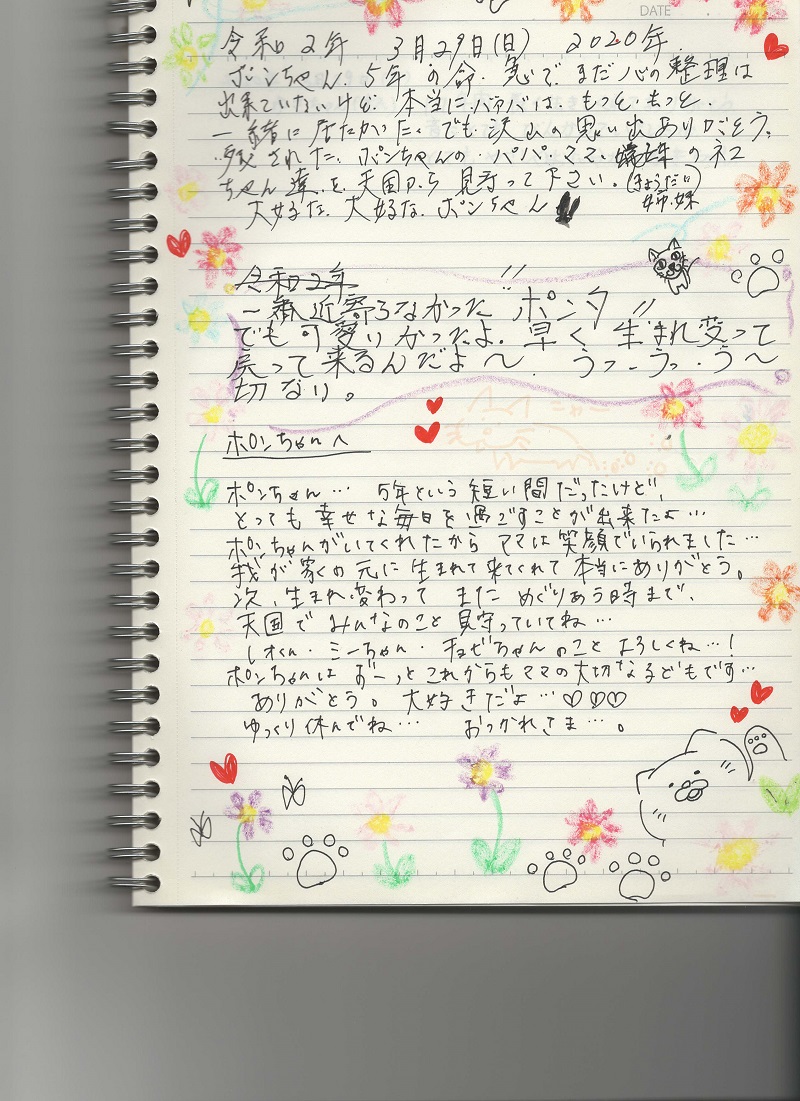 DATE
令和2年 3月29日(日) 2020年.
ポンちゃん. 5年の命. 急で まだ心の整理は
出来ていないけど. 本当に. バァバは. もっと. もっと.
一緒に居たかった. でも. 沢山の思い出ありがとう.
残された. ポンちゃんの パパ. ママ. のネコ
ちゃん達を天国から見守って下さい. (きょうだい)
姉. 妹
大好な. 大好な. ポンちゃん
令和2年
一番近寄らなかった"ポンタ"
でも可愛いかったよ. 早く生まれ変って
戻って来るんだよ〜. うっ‐うっ‐う〜
切ない。
ニャー
ポンちゃんへ
ポンちゃん… 5年という短い間だったけど、
とっても幸せな毎日を過ごすことが出来たよ…
ポンちゃんがいてくれたから ママは笑顔でいられました…
我が家の元に生まれて来てくれて本当にありがとう。
次、生まれ変わって また めぐりあう時まで、
天国で みんなのこと見守っていてね…
レオくん・ミーちゃん・チョビちゃんのことよろしくね…!
ポンちゃんは ずーっとこれからもママの大切な子どもです…
ありがとう。大好きだよ…♡♡♡
ゆっくり休んでね… おつかれさま…。